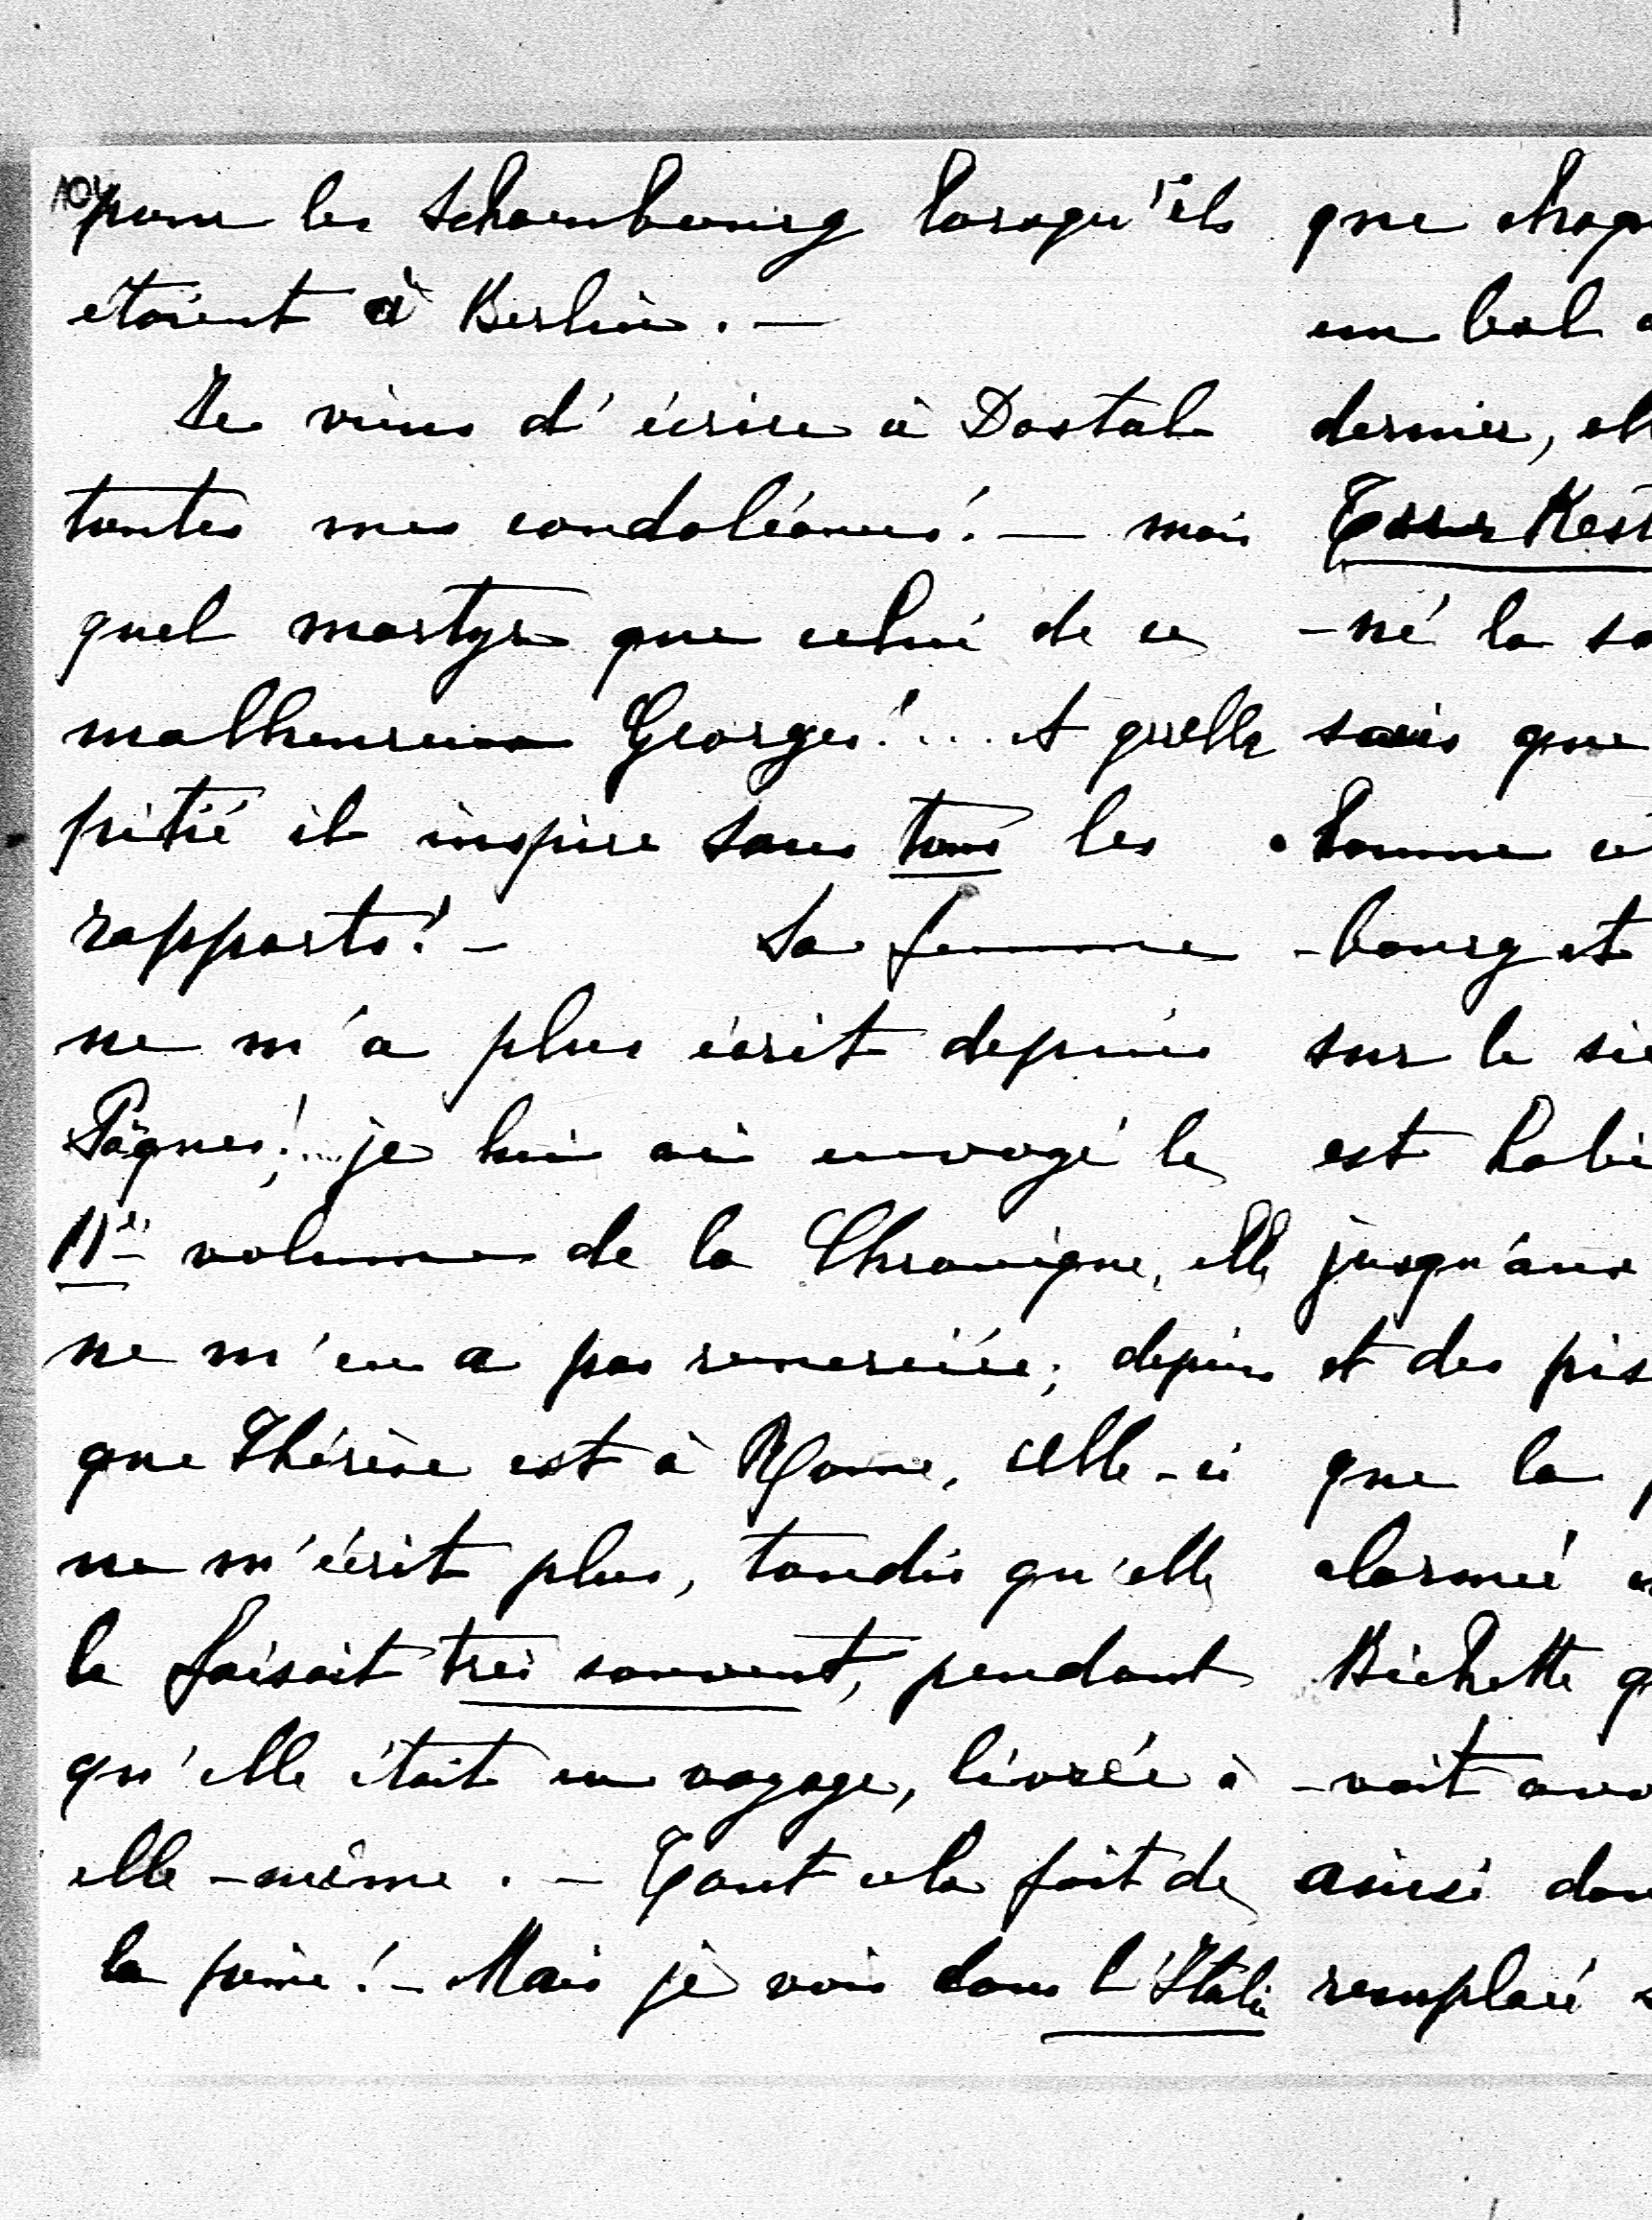 104
pour les Schoenbourg lorsqu'ils
étaient à Berlin. —
Je viens d'écrire à Dostal
toutes mes condoléances! — mais
quel martyre que celui de ce
malheureux Georges!... et quelle
pitié il inspire sous tous les
rapports! — Sa femme
ne m'a plus écrit depuis
Pâques!... je lui ai envoyé le
11e volume de la Chronique, elle
ne m'en a pas remerciée; depuis
que Thérèse est à Rome, celle-ci
ne m'écrit plus, tandis qu'elle
le faisait très souvent, pendant
qu'elle était en voyage, livrée à
elle-même. — Tout cela fait de
la peine! — Mais je vois dans l'Italie
que chaqu
un bal
dernier, ell
-né la
sais que
homme
-bourg et
sur le
est
jusqu'aux
et des
que la
alarmé
Bichette
-vait
ainsi
remplacé